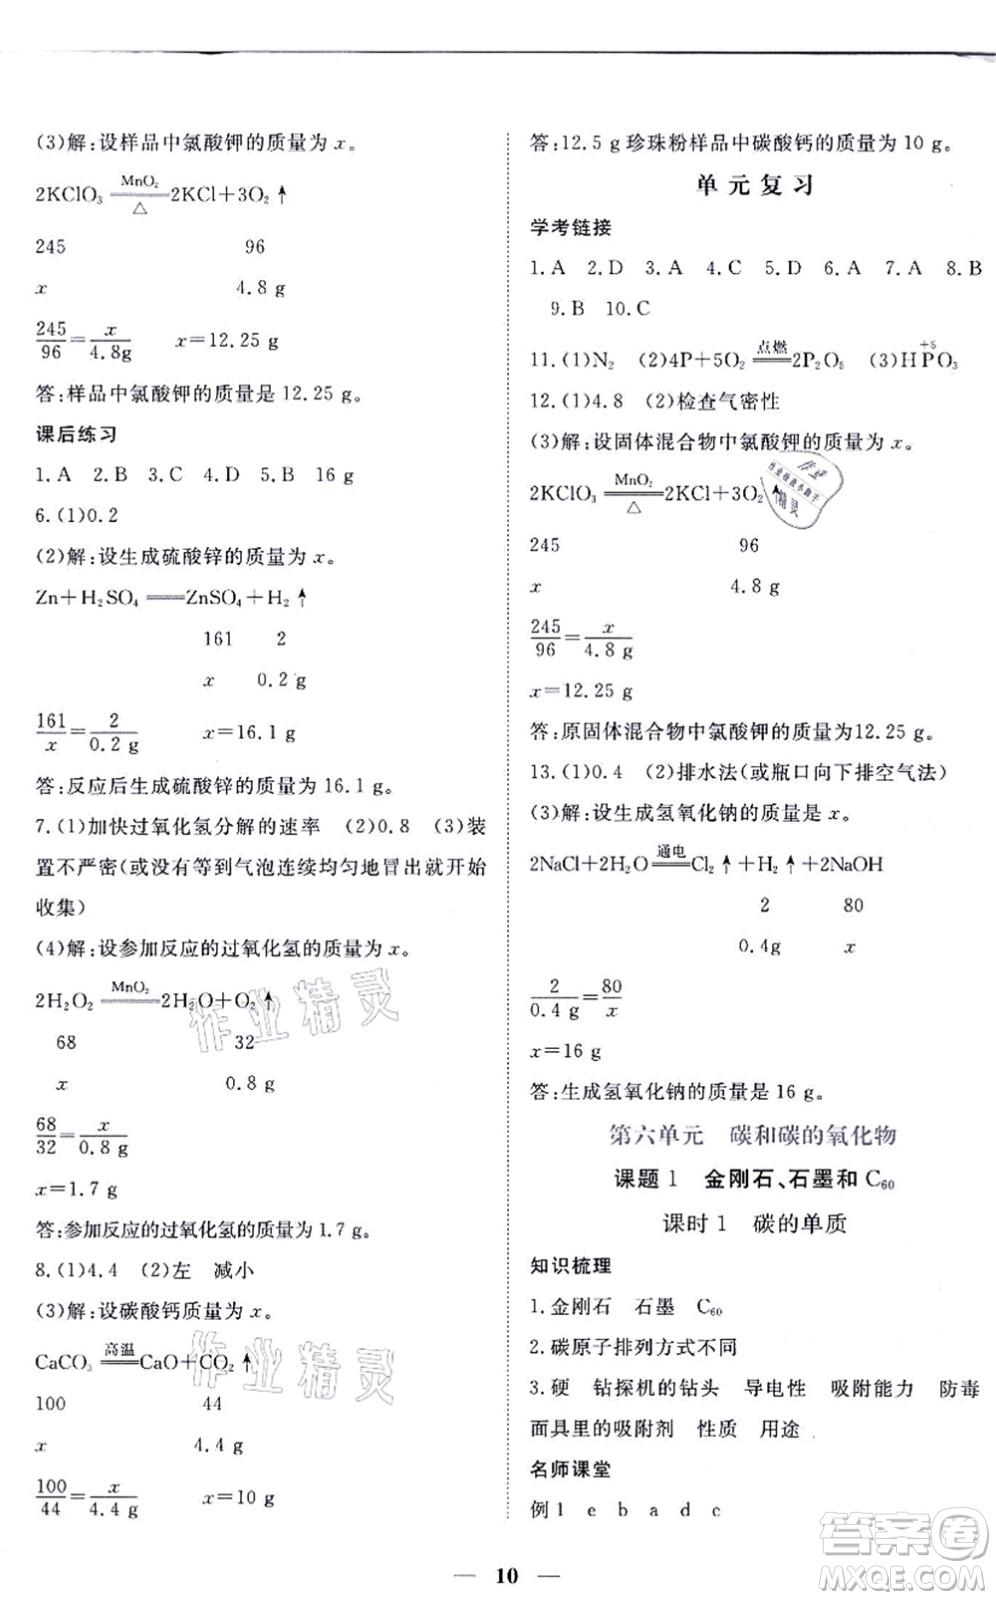 (3)解:设样品中氯酸钾的质量为 x。
2KClO₃ =MnO₂/△= 2KCl+3O₂↑
245 96
x 4.8 g
245/96 = x/4.8g x=12.25 g
答:样品中氯酸钾的质量是 12.25 g。
课后练习
1.A 2.B 3.C 4.D 5.B 16 g
6.(1)0.2
(2)解:设生成硫酸锌的质量为 x。
Zn+H₂SO₄ == ZnSO₄+H₂↑
161 2
x 0.2 g
161/x = 2/0.2 g x=16.1 g
答:反应后生成硫酸锌的质量为 16.1 g。
7.(1)加快过氧化氢分解的速率 (2)0.8 (3)装
置不严密(或没有等到气泡连续均匀地冒出就开始
收集)
(4)解:设参加反应的过氧化氢的质量为 x。
2H₂O₂ =MnO₂= 2H₂O+O₂↑
68 32
x 0.8 g
68/32 = x/0.8 g
x=1.7 g
答:参加反应的过氧化氢的质量为 1.7 g。
8.(1)4.4 (2)左 减小
(3)解:设碳酸钙质量为 x。
CaCO₃ =高温= CaO+CO₂↑
100 44
x 4.4 g
100/44 = x/4.4 g x=10 g
答:12.5 g 珍珠粉样品中碳酸钙的质量为 10 g。
单元复习
学考链接
1.A 2.D 3.A 4.C 5.D 6.A 7.A 8.B
9.B 10.C
11.(1)N₂ (2)4P+5O₂ =点燃= 2P₂O₅ (3)H⁺⁵PO₃
12.(1)4.8 (2)检查气密性
(3)解:设固体混合物中氯酸钾的质量为 x。
2KClO₃ =MnO₂/△= 2KCl+3O₂↑
245 96
x 4.8 g
245/96 = x/4.8 g
x=12.25 g
答:原固体混合物中氯酸钾的质量为12.25 g。
13.(1)0.4 (2)排水法(或瓶口向下排空气法)
(3)解:设生成氢氧化钠的质量是 x。
2NaCl+2H₂O =通电= Cl₂↑+H₂↑+2NaOH
2 80
0.4g x
2/0.4 g = 80/x
x=16 g
答:生成氢氧化钠的质量是 16 g。
第六单元 碳和碳的氧化物
课题 1 金刚石、石墨和 C₆₀
课时 1 碳的单质
知识梳理
1.金刚石 石墨 C₆₀
2.碳原子排列方式不同
3.硬 钻探机的钻头 导电性 吸附能力 防毒
面具里的吸附剂 性质 用途
名师课堂
例 1 e b a d c
— 10 —
作业精灵
作业精灵
答案卷
MXQE.COM